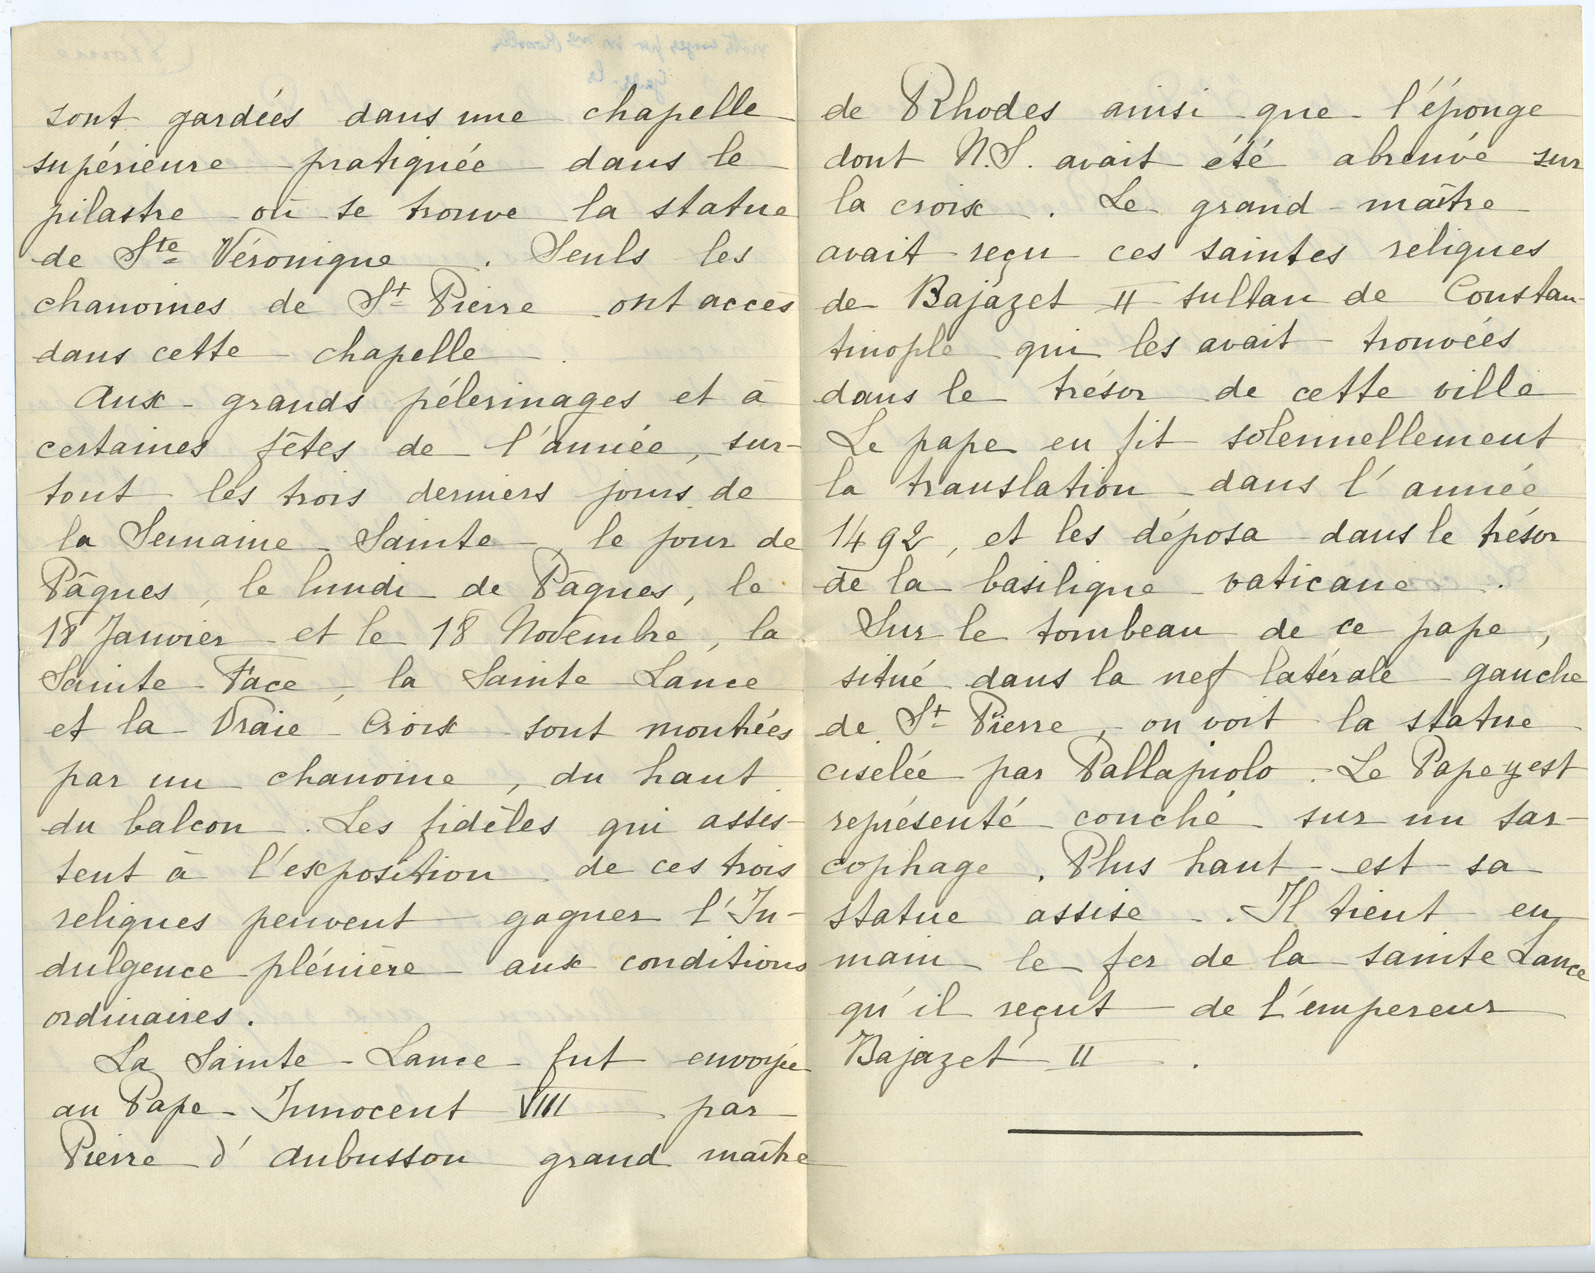 sont gardées dans une chapelle
supérieure pratiquée dans le
pilastre où se trouve la statue
de Ste Véronique . Seuls les
chanoines de St Pierre ont accès
dans cette chapelle .
Aux grands pélerinages et à
certaines fêtes de l'année, sur-
tout les trois derniers jours de
la Semaine Sainte, le jour de
Pâques, le lundi de Pâques, le
18 Janvier et le 18 Novembre, la
Sainte Face, la Sainte Lance
et la Vraie Croix sont montrées
par un chanoine, du haut
du balcon . Les fidèles qui assis-
tent à l'exposition de ces trois
reliques peuvent gagner l'In-
dulgence plénière aux conditions
ordinaires .
La Sainte Lance fut envoyée
au Pape Innocent VIII par
Pierre d'Aubusson grand maître
de Rhodes ainsi que l'éponge
dont N.S. avait été abreuvé sur
la croix . Le grand maître
avait reçu ces saintes reliques
de Bajazet II sultan de Constan-
tinople qui les avait trouvées
dans le trésor de cette ville
Le pape en fit solennellement
la translation dans l'année
1492, et les déposa dans le trésor
de la basilique vaticane .
Sur le tombeau de ce pape,
situé dans la nef latérale gauche
de St Pierre, on voit la statue
ciselée par Pallajuolo . Le Pape y est
représenté couché sur un sar-
cophage . Plus haut est sa
statue assise . Il tient en
main le fer de la sainte Lance
qu'il reçut de l'empereur
Bajazet II .